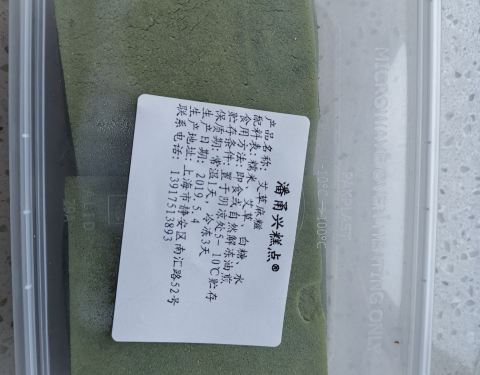 潘甬兴糕点®
产品名称: 艾草麻糍
配料表: 糯米、艾草、白糖、水
食用方法: 即食或自然解冻油煎
贮存条件: 置于阴凉处5-10℃贮存
保质期: 常温1天、冷冻3天
生产日期: 2019.5.4
生产地址: 上海市静安区南汇路52号
联系电话: 13917513893